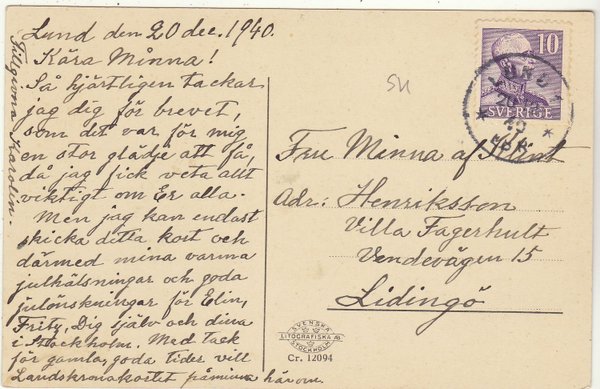 Lund den 20 dec. 1940.
Kära Minna!
Så hjärtligen tackar
jag dig för brevet,
som det var för mig
en stor glädje att få,
då jag fick veta allt
viktigt om Er alla.
Men jag kan endast
skicka detta kort och
därmed mina varma
julhälsningar och goda
julönskningar för Elin,
Fritz, Dig själv och dina
i Stockholm. Med tack
för gamla, goda tider vill
Landskronakortet påminna härom.
Tillgivna Karolin.
SU
10
SVERIGE
LUND 1
20 12
40
Fru Minna af Klint
Adr: Henriksson
Villa Fagerhult
Vendevägen 15
Lidingö
SVENSKA
LITOGRAFISKA AB
STOCKHOLM
Cr. 12094